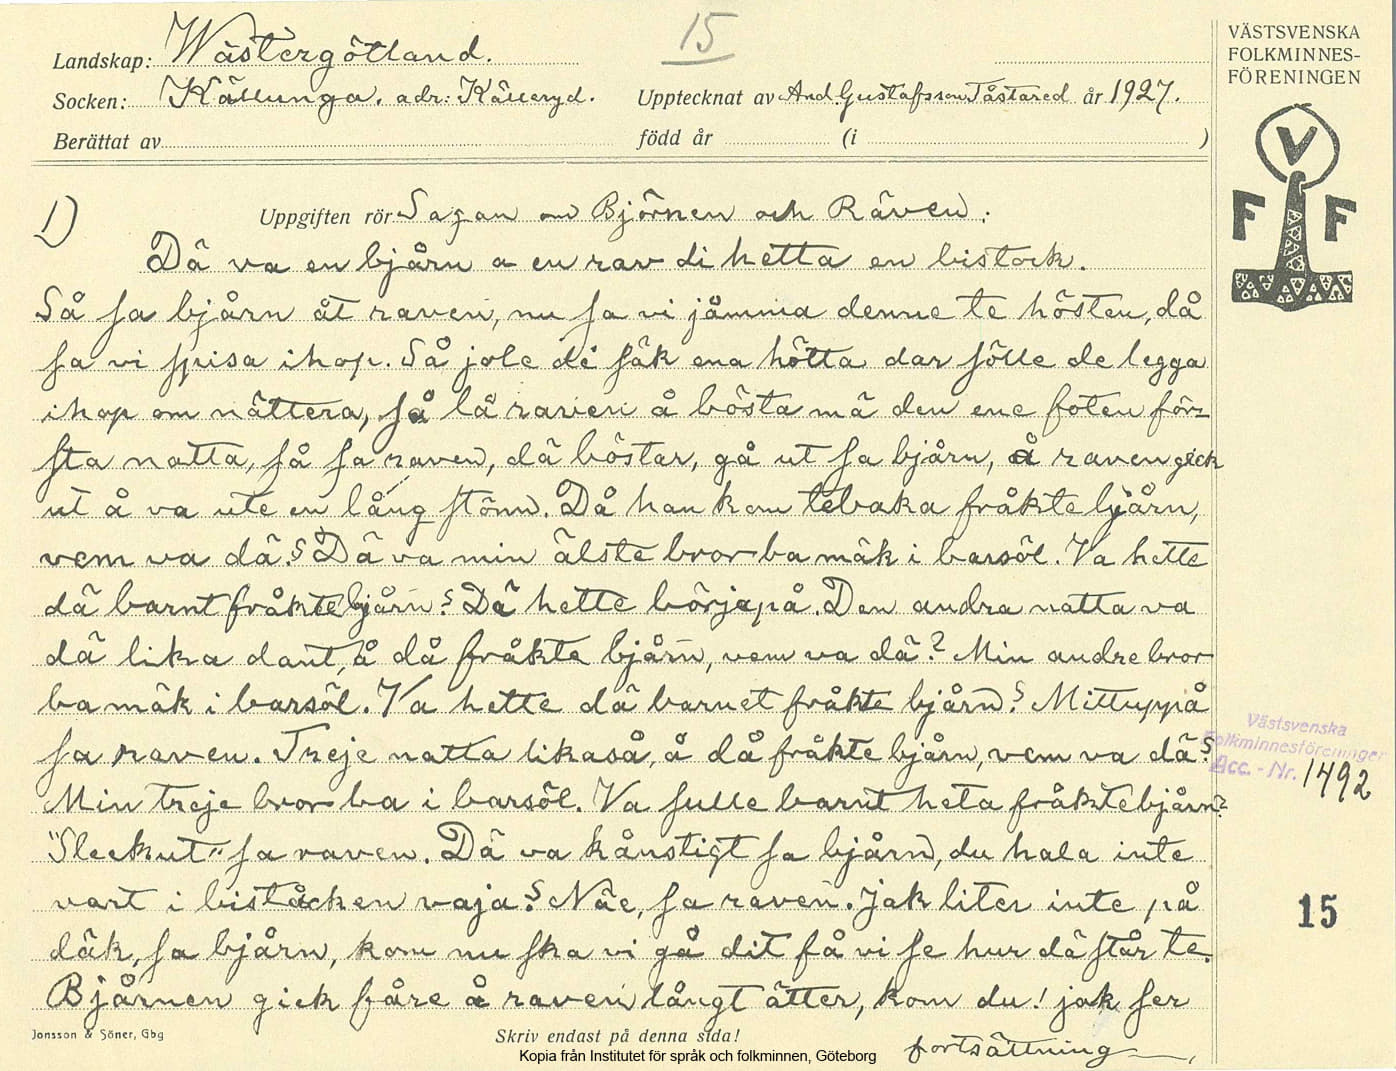 15
VÄSTSVENSKA
FOLKMINNES-
FÖRENINGEN
Landskap: Wästergötland.
Socken: Källunga. adr: Källeryd. Upptecknat av And. Gustafsson Tåstared år 1927.
Berättat av född år (i )
V
F F
1) Uppgiften rör Sagan om Björnen och Räven.
Dä va en bjårn a en rav di hetta en bistock.
Så sa bjårn åt raven, nu sa vi jåmma denne te hösten, då
sa vi spisa ihop. Så jole de säk ena hötta dar sölle de legga
ihop om nättera, så lå raven å bösta mä den ene foten för-
sta natta, så sa raven, dä böstar, gå ut sa bjårn, å raven geck
ut å va ute en lång stönn. Då han kom tebaka fråkte bjårn,
vem va dä? Dä va min älste bror ba mäk i barsöl. Va hette
dä barnt fråkte bjårn? Dä hette börja på. Den andra natta va
dä lika dant, å då fråkte bjårn, vem va dä? Min andre bror
ba mäk i barsöl. Va hette dä barnet fråkte bjårn? Mittuppå
sa raven. Treje natta likaså, å då fråkte bjårn, vem va dä?
Min treje bror ba i barsöl. Va sulle barnt heta fråkte bjårn?
"Sleckut" sa raven. Dä va kånstigt sa bjårn, du hala inte
vart i biståcken vaja? Näe, sa raven. Jak liter inte på
däk, sa bjårn, kom nu ska vi gå dit få vi se hur dä står te.
Bjårnen gick fåre å raven långt ätter, kom du! jak ser
fortsättning
Västsvenska
Folkminnesföreningen
Acc. - Nr. 1492
15
Jonsson & Söner, Gbg
Skriv endast på denna sida!
Kopia från Institutet för språk och folkminnen, Göteborg